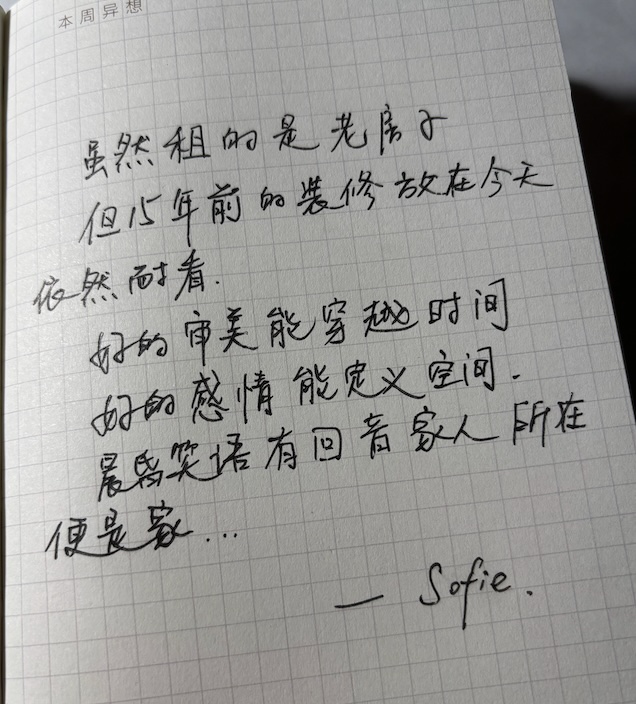 本周异想
虽然租的是老房子
但15年前的装修放在今天
依然耐看.
好的审美能穿越时间
好的感情能定义空间.
晨昏笑语有回音家人所在
便是家...
— Sofie.